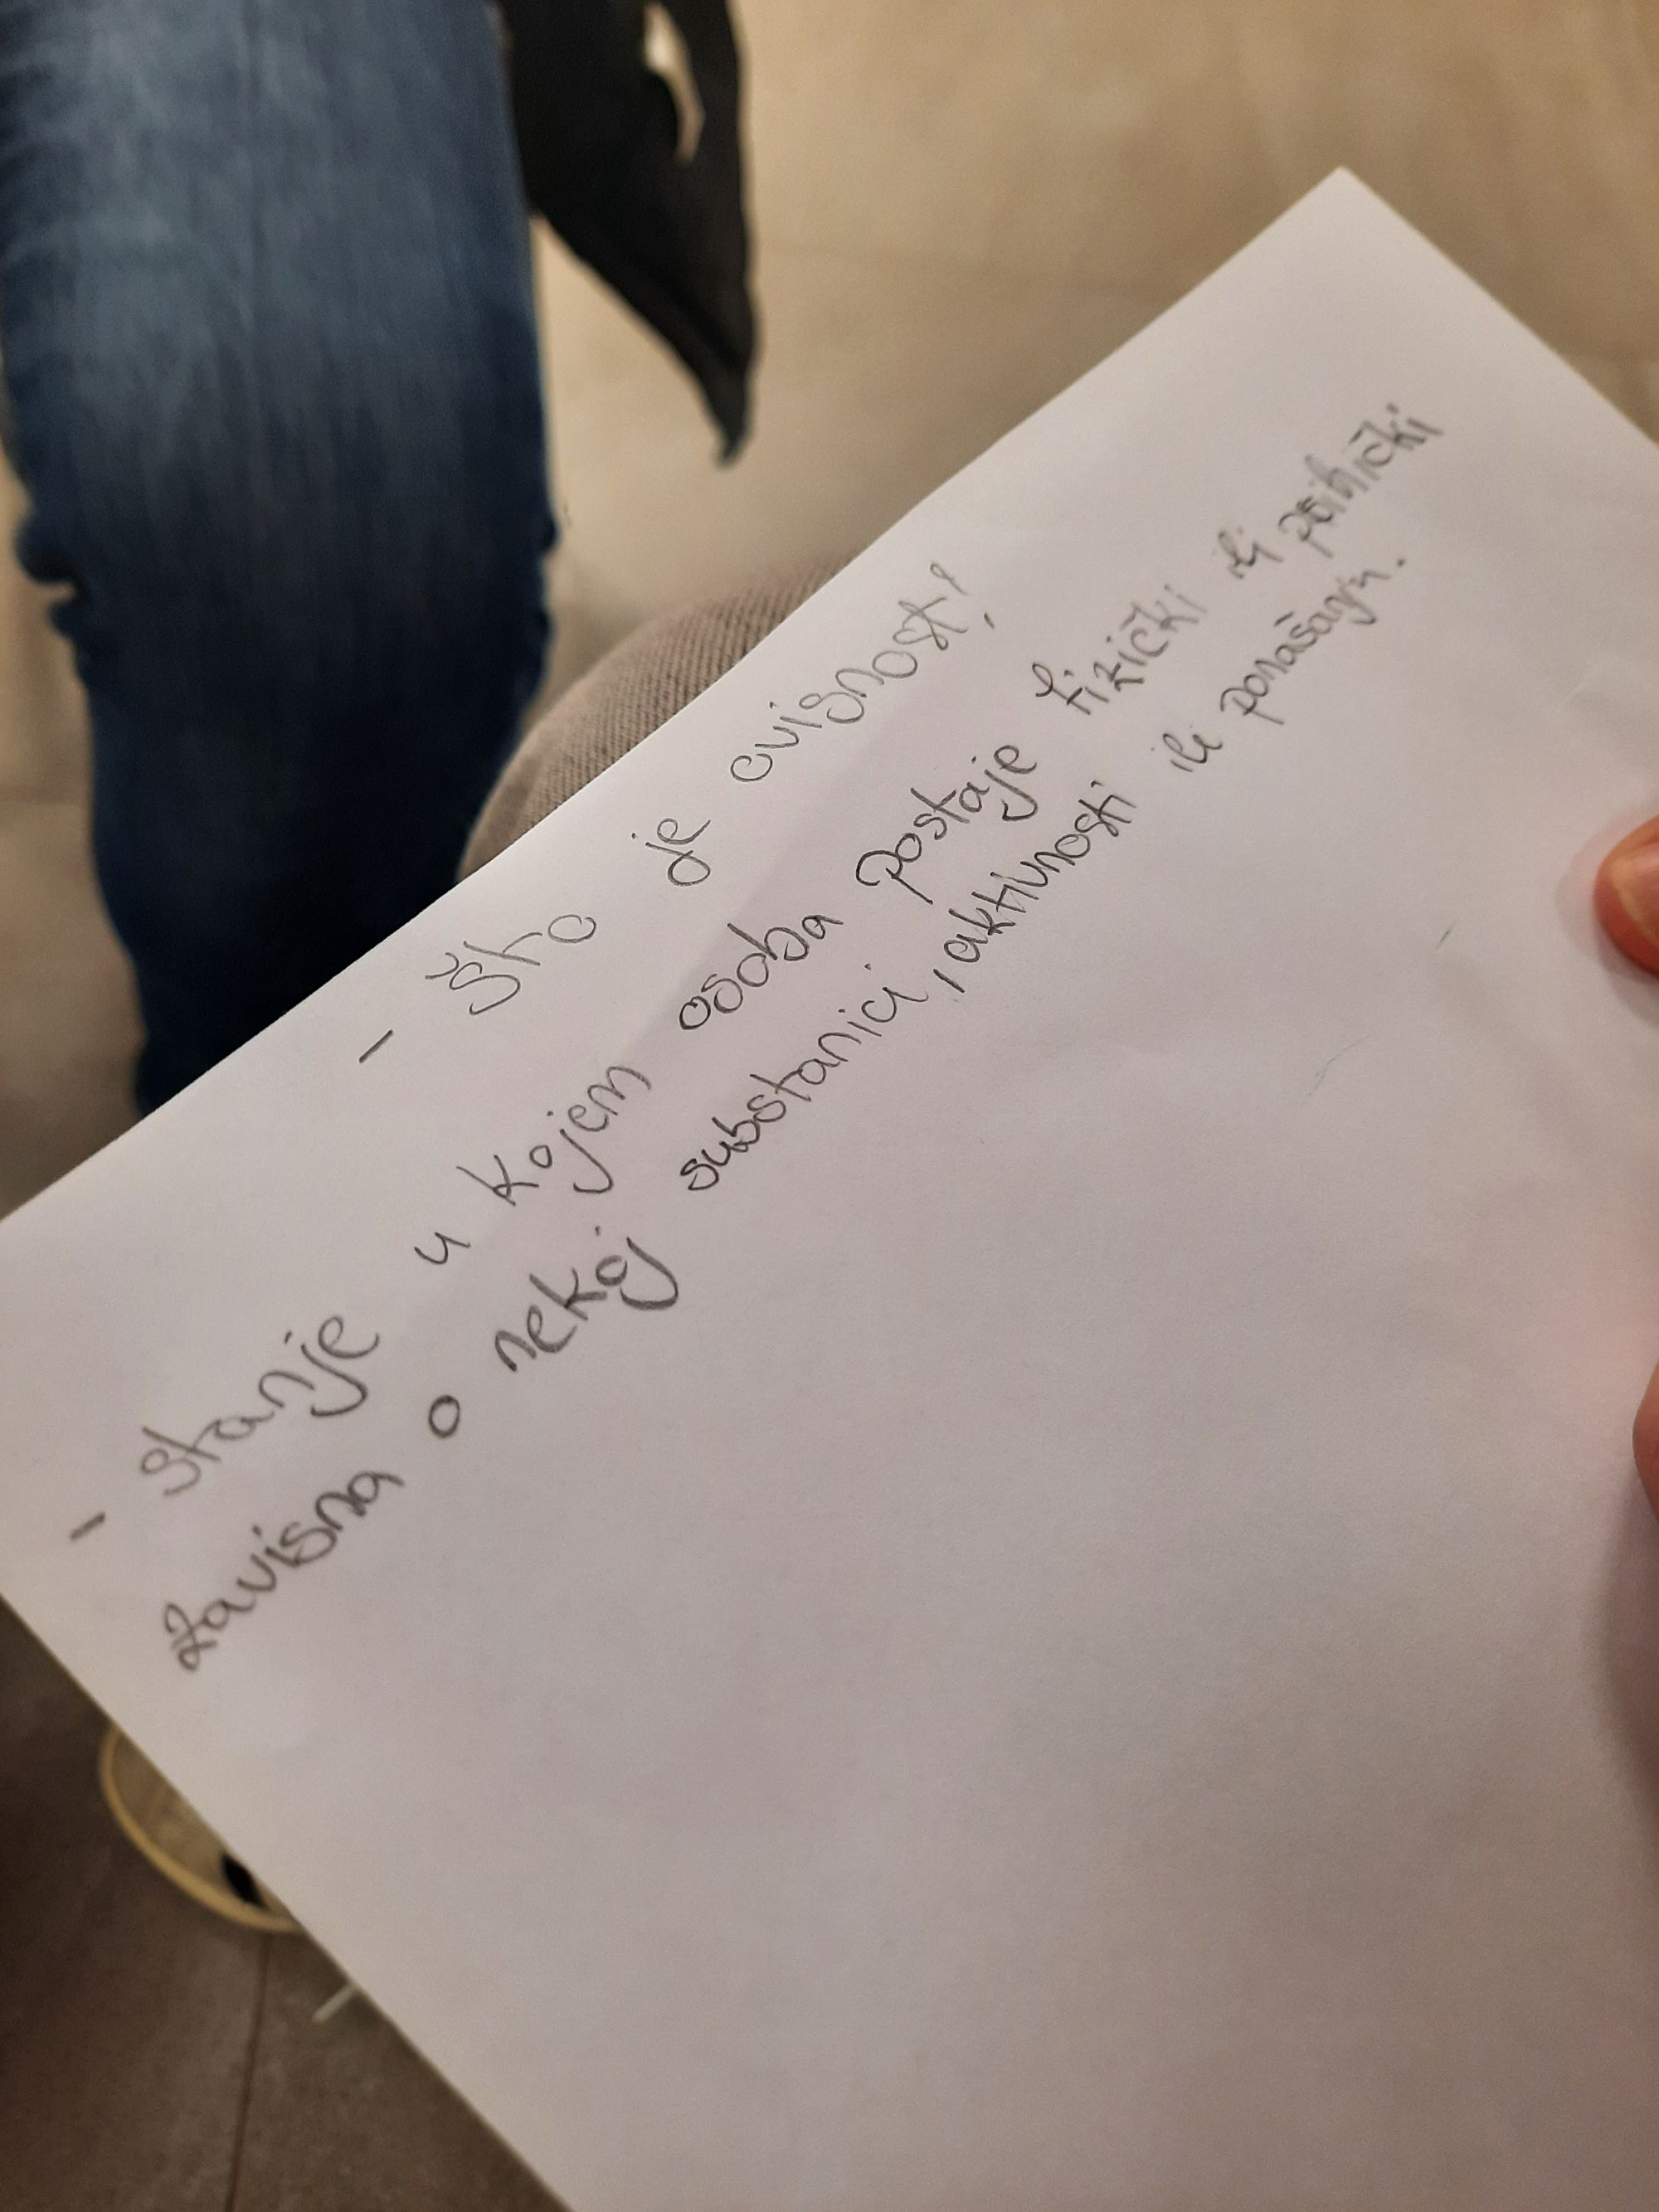 - Što je ovisnost?
- stanje u kojem osoba postaje fizički ili psihički
zavisna o nekoj substanici, aktivnosti ili ponašanju.